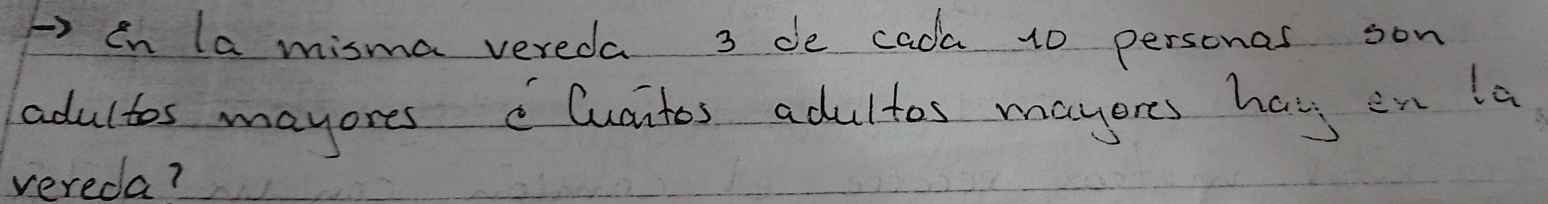 → En la misma vereda 3 de cada 10 personas son
adultos mayores ¿Cuántos adultos mayores hay en la
vereda?